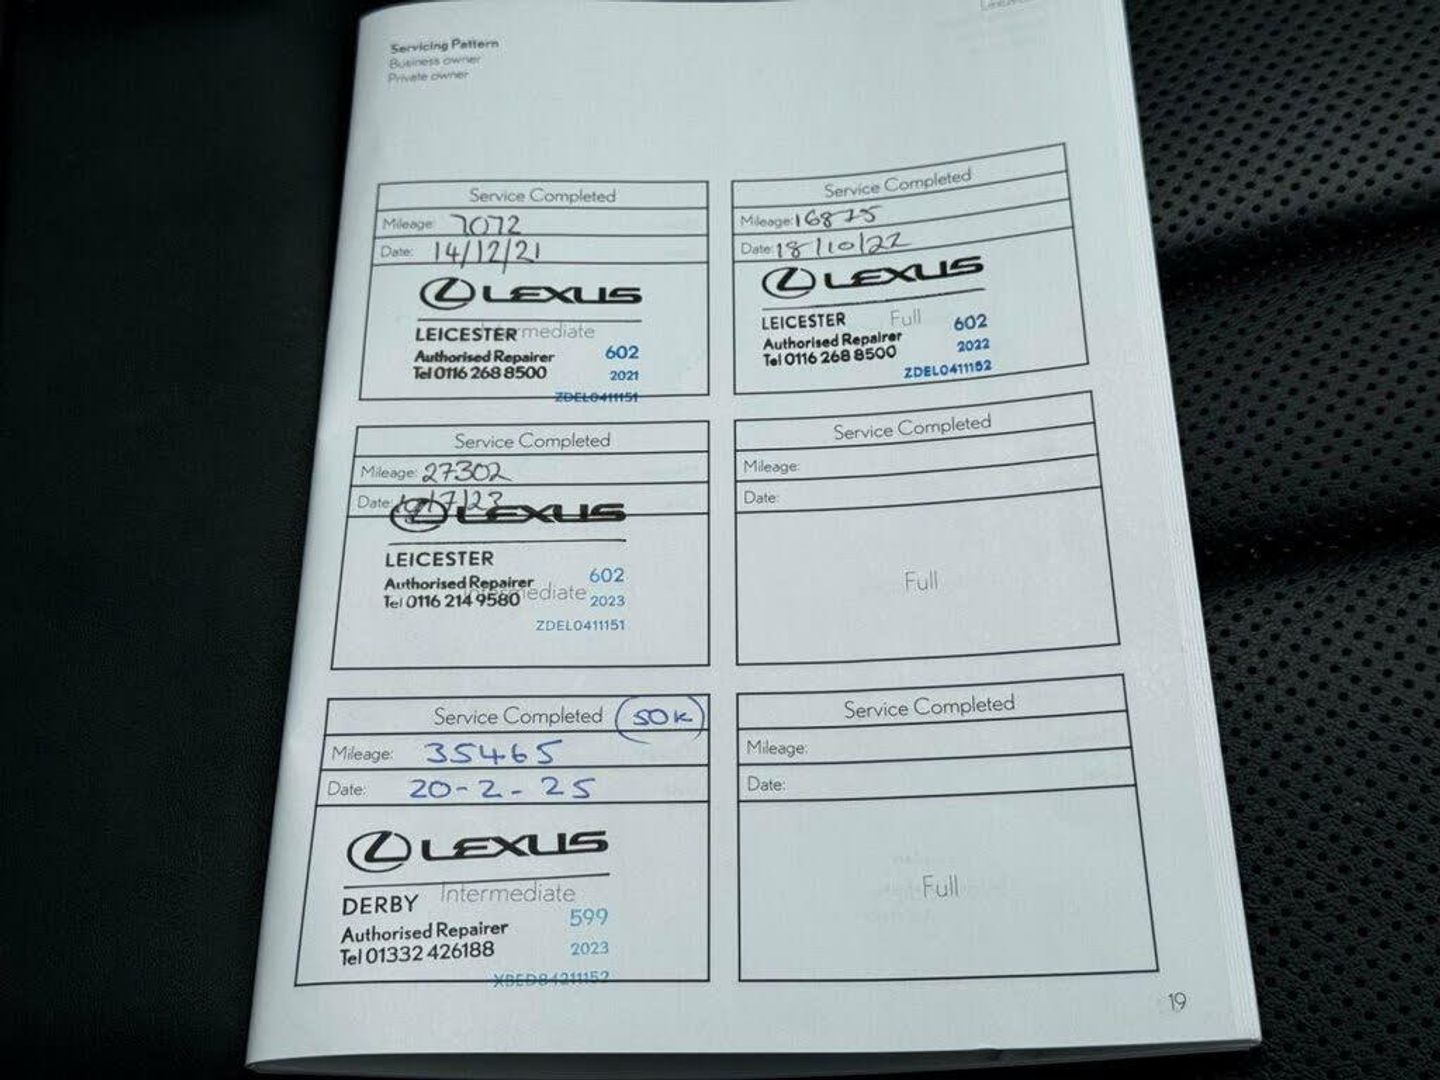 Servicing Pattern
Business owner
Private owner
Service Completed
Mileage: 7072
Date: 14/12/21
LEXUS
LEICESTER Intermediate
Authorised Repairer 602
Tel 0116 268 8500 2021
ZDEL0411151
Service Completed
Mileage: 16875
Date: 18/10/22
LEXUS
LEICESTER Full 602
Authorised Repairer 2022
Tel 0116 268 8500
ZDEL0411152
Service Completed
Mileage: 27302
Date:
LEXUS
LEICESTER
Authorised Repairer 602
Tel 0116 214 9580 Intermediate 2023
ZDEL0411151
Service Completed
Mileage:
Date:
Full
Service Completed (50K)
Mileage: 35465
Date: 20-2-25
LEXUS
DERBY Intermediate
Authorised Repairer 599
Tel 01332 426188 2023
Service Completed
Mileage:
Date:
Full
19